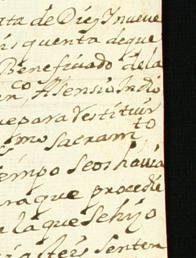 ata de Diez Inueve
is quenta de que
Benefiçiado de la
co
en Asensio Indio
que para Vestituir
smo Sacramto
empo se os havia
ra que procedie
e la que se hizo
senten